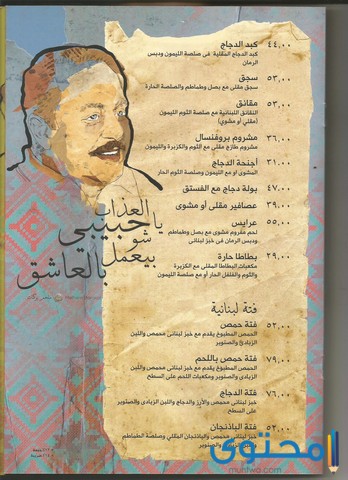 كبد الدجاج ٤٤,٠٠
كبد الدجاج المقلية فى صلصة الليمون ودبس
الرمان
سجق ٥٣,٠٠
سجق مقلى مع بصل وطماطم والصلصة الحارة
مقانق ٥٣,٠٠
النقانق اللبنانية مع صلصة الثوم الليمون
(مقلى أو مشوى)
مشروم بروفنسال ٣٦,٠٠
مشروم طازج مقلى مع الثوم والكزبرة والليمون
أجنحة الدجاج ٣١,٠٠
المشوى او مع الليمون وصلصة الثوم الحار
بولة دجاج مع الفستق ٤٧,٠٠
عصافير مقلى أو مشوى ٣٩,٠٠
عرايس ٥٥,٠٠
لحم مفروم مشوى مع بصل وطماطم
ودبس الرمان فى خبز لبنانى
بطاطا حارة ٢٩,٠٠
مكعبات البطاطا المقلى مع الكزبرة
والثوم والفلفل الحار أو مع صلصة الليمون
فتة لبنانية
فتة حمص ٥٢,٠٠
الحمص المطبوخ يقدم مع خبز لبنانى محمص واللبن
الزبادى والصنوبر
فتة حمص باللحم ٧٩,٠٠
الحمص المطبوخ يقدم مع خبز لبنانى محمص واللبن
الزبادى والصنوبر ومكعبات اللحم على السطح
فتة الدجاج ٧٦,٠٠
خبز لبنانى محمص والأرز والدجاج واللبن الزبادى والصنوبر
على السطح
فتة الباذنجان ٥٢,٠٠
خبز لبنانى محمص والباذنجان المقلى وصلصة الطماطم
العذاب
يا حبيبي
شو
بيعمل
بالعاشق
محتوى
muhtwa.com